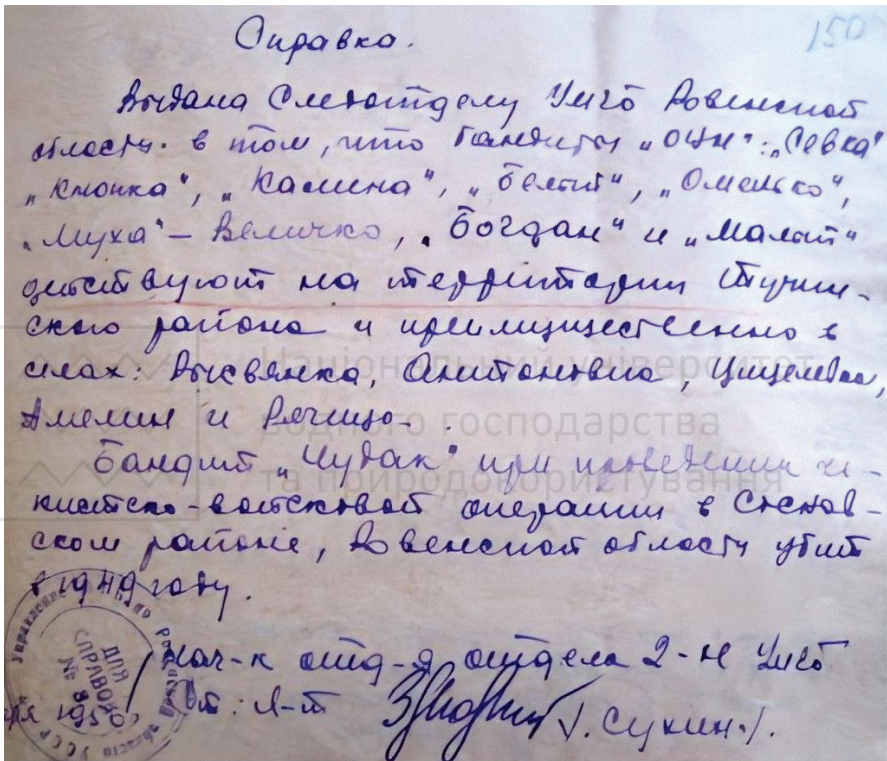 150
Справка.
Выдана Следотделу УМГБ Ровенской
области. в том, что бандиты „ОУН": „Севка"
„Кмонка", „Калина", „Белый", „Омелько",
„Муха" – Величко, „Богдан" и „Малый"
действуют на территории Тучин-
ского района и преимущественно в
селах: Высвянка, Антоновка,
Амелин и Речище.
Бандит „Чудак" при проведении че-
кистско-войсковой операции в Соснов-
ском районе, Ровенской области убит
в 1949 году.
Нач-к отд-я отдела 2-Н УМГБ
Ст: л-т /. Сукин./.
1950
ДЛЯ
СПРАВОК
№
УССР
Національний університет
водного господарства
та природокористування